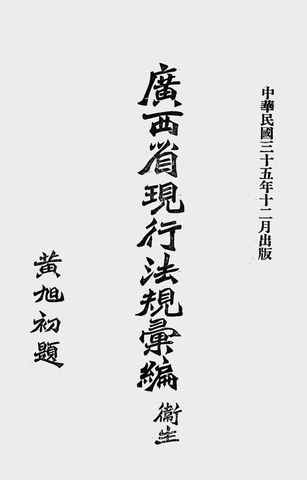 中華民國三十五年十二月出版
廣西省現行法規彙編
衞生
黃旭初題